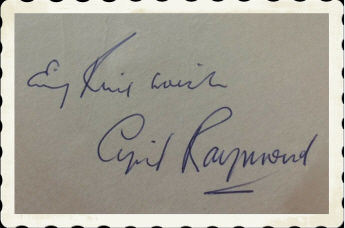 Every Kind wish
Cyril Raymond